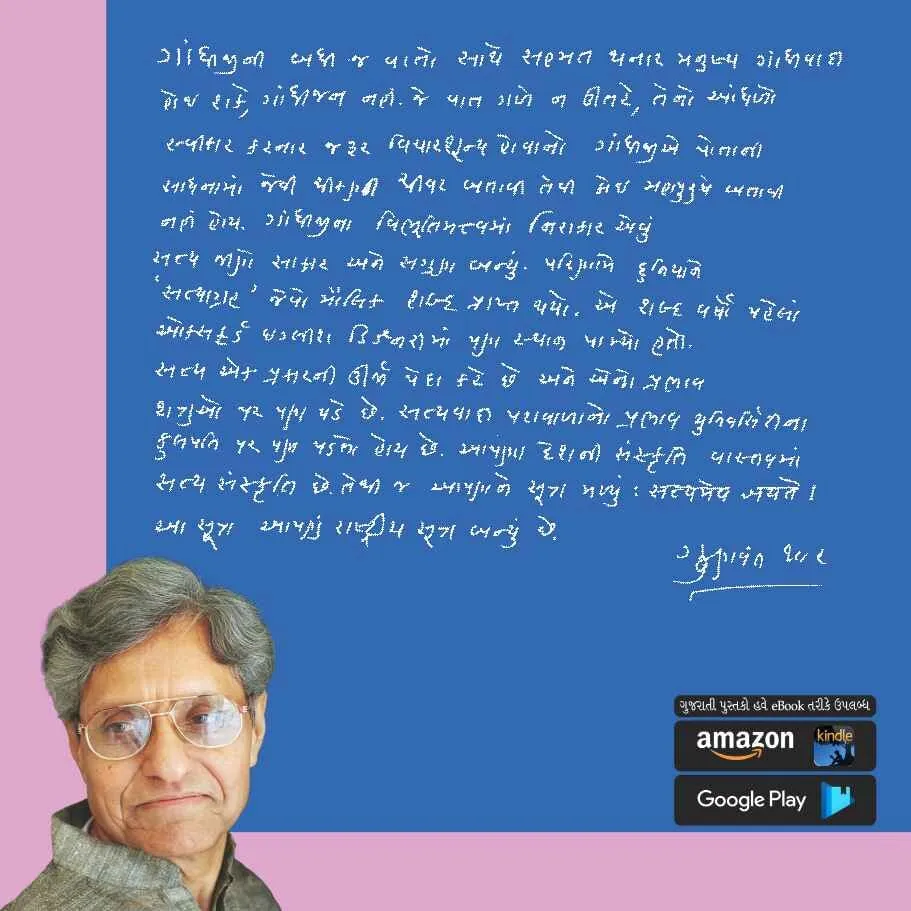 ગાંધીજીની બધી જ વાતો સાથે સહમત થનાર મનુષ્ય ગાંધીવાદી
હોઈ શકે, ગાંધીજન નહીં. જે વાત ગળે ન ઊતરે, તેનો આંધળો
સ્વીકાર કરનાર જરૂર વિચારશૂન્ય હોવાનો ગાંધીજીએ પોતાની
સાધનામાં જેવી ચીવટ બતાવી તેવી કોઈ મહાપુરુષે બતાવી
નહીં હોય. ગાંધીજીના વિભૂતિમત્ત્વમાં નિરાકાર એવું
સત્ય જાણે સાકાર અને સગુણ બન્યું. પરિણામે દુનિયાને
'સત્યાગ્રહ' જેવો મૌલિક શબ્દ પ્રાપ્ત થયો. એ શબ્દ વર્ષો પહેલાં
ઓક્સફર્ડ ઇંગ્લીશ ડિક્શનરીમાં પણ સ્થાન પામ્યો હતો.
સત્ય એક પ્રકારની ઊર્જા પેદા કરે છે અને એનો પ્રભાવ
શત્રુઓ પર પણ પડે છે. સત્યવાદી પટાવાળાનો પ્રભાવ યુનિવર્સિટીના
કુલપતિ પર પણ પડતો હોય છે. આપણા દેશની સંસ્કૃતિ વાસ્તવમાં
સત્ય સંસ્કૃતિ છે. તેથી જ આપણને સૂત્ર મળ્યું : સત્યમેવ જયતે !
આ સૂત્ર આપણું રાષ્ટ્રીય સૂત્ર બન્યું છે.
ગુણવંત શાહ
ગુજરાતી પુસ્તકો હવે eBook તરીકે ઉપલબ્ધ
amazon kindle
Google Play